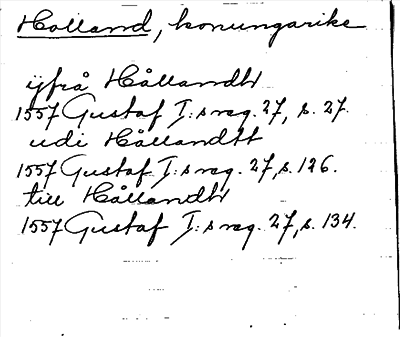 Holland, konungarike
ifrå Hållandh
1557 Gustaf I:s reg. 27, s. 27.
udi Hållandtt
1557 Gustaf I:s reg. 27, s. 126.
till Hållandh
1557 Gustaf I:s reg. 27, s. 134.